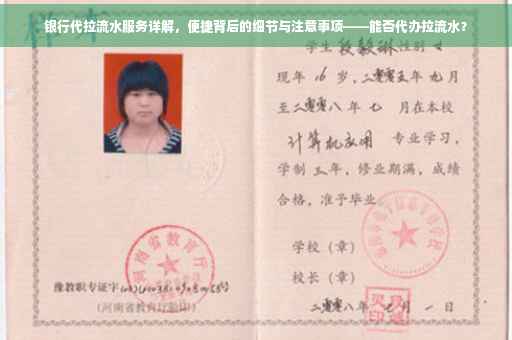 银行代拉流水服务详解，便捷背后的细节与注意事项——能否代办拉流水？
学生段毅琳性别 女
现年 16 岁，二零零五年 九月
至二零零八年 七 月在本校
计算机应用 专业学习，
学制 三年，修业期满，成绩
合格，准予毕业。
学校（章）
校长（章）
二零零八年 七 月 一 日
河南省教育厅
豫教职专证字
（河南省教育厅验印）